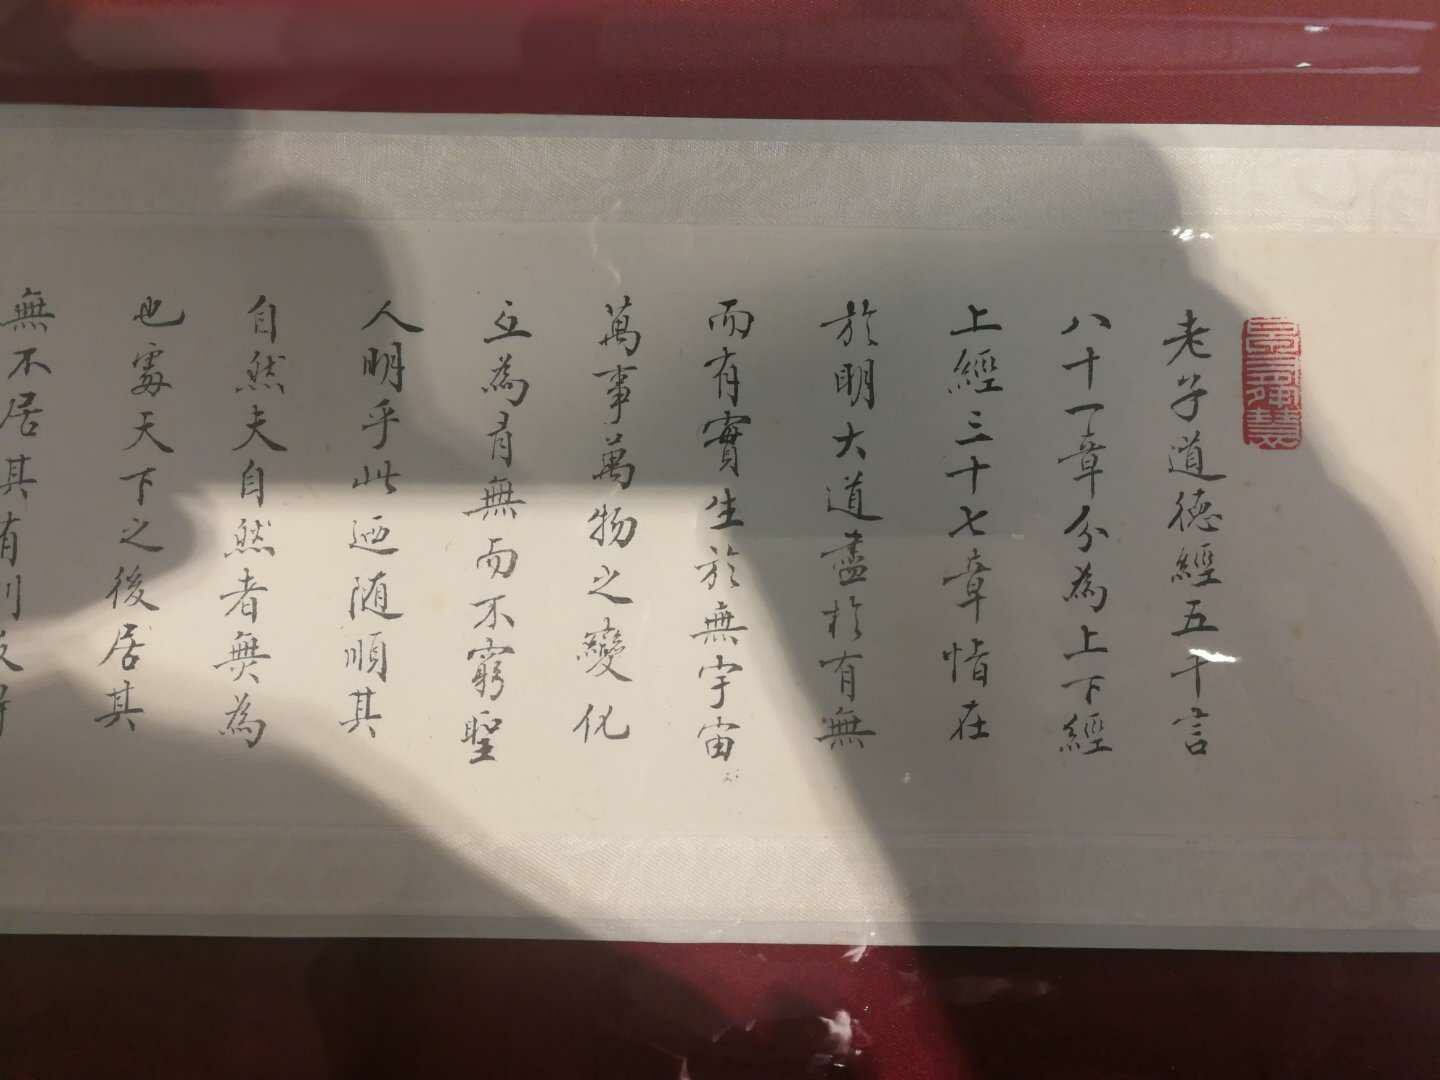 老子道德經五千言
八十一章分為上下經
上經三十七章恉在
於明大道盡於有無
而有實生於無宇宙
萬事萬物之變化
互為有無而不窮聖
人明乎此迺隨順其
自然夫自然者無為
也處天下之後居其
無不居其有